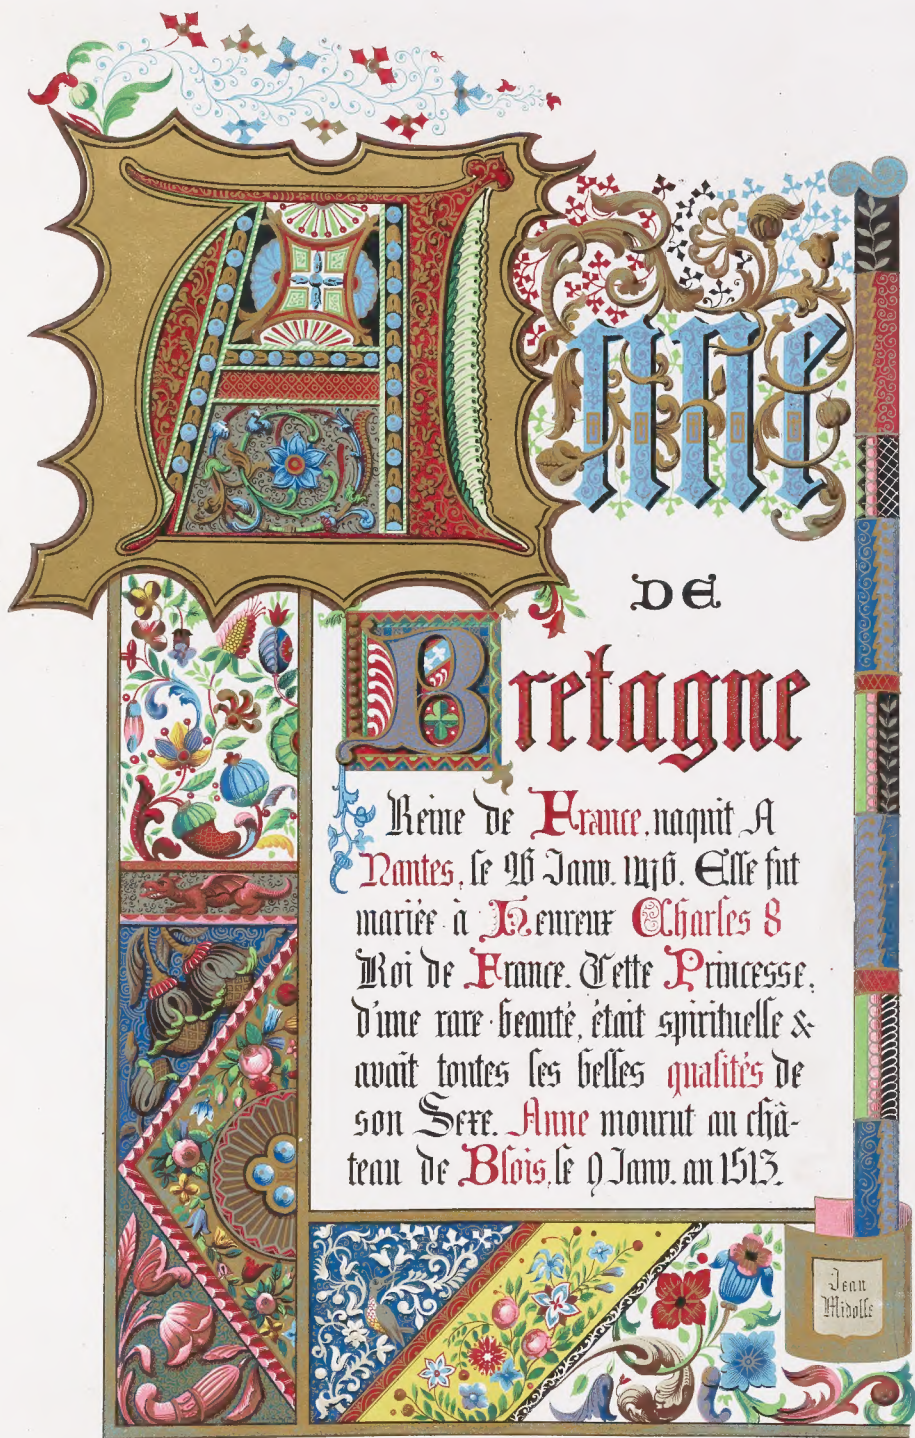 Anne
DE
Bretagne
Reine de France, naquit A
Nantes, le 26 Janv. 1476. Elle fut
mariée à Heureux Charles 8
Roi de France. Cette Princesse,
d'une rare beauté, était spirituelle &
avait toutes les belles qualités de
son Sexe. Anne mourut au châ-
teau de Blois, le 9 Janv. an 1513.
Jean
Midolle